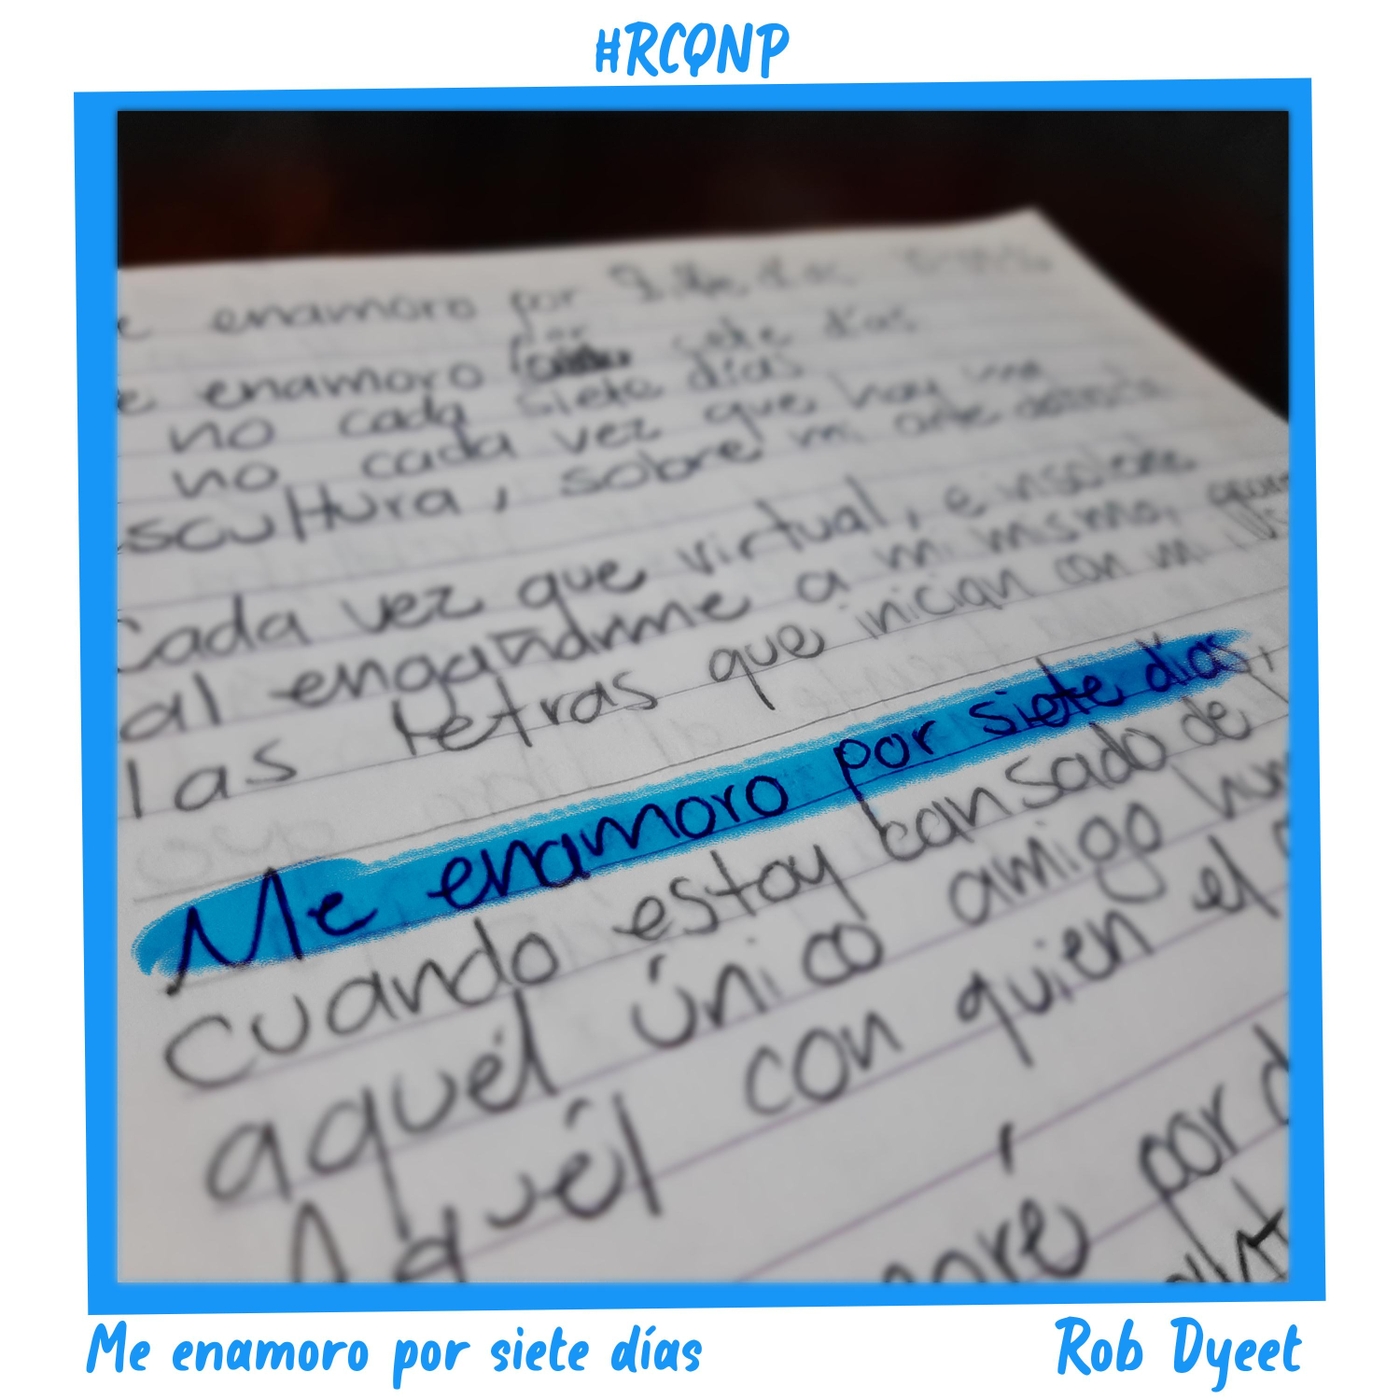 #RCQNP
enamoro por
enamoro por siete días
no cada siete días
no cada vez que hay
scultura, sobre mi ante
Cada vez que virtual, e insolente
al engañarme a mi mismo,
las letras que inician con mi
Me enamoro por siete días,
cuando estoy cansado de
aquél único amigo
Aquél con quien el
por
Me enamoro por siete días
Rob Dyeet